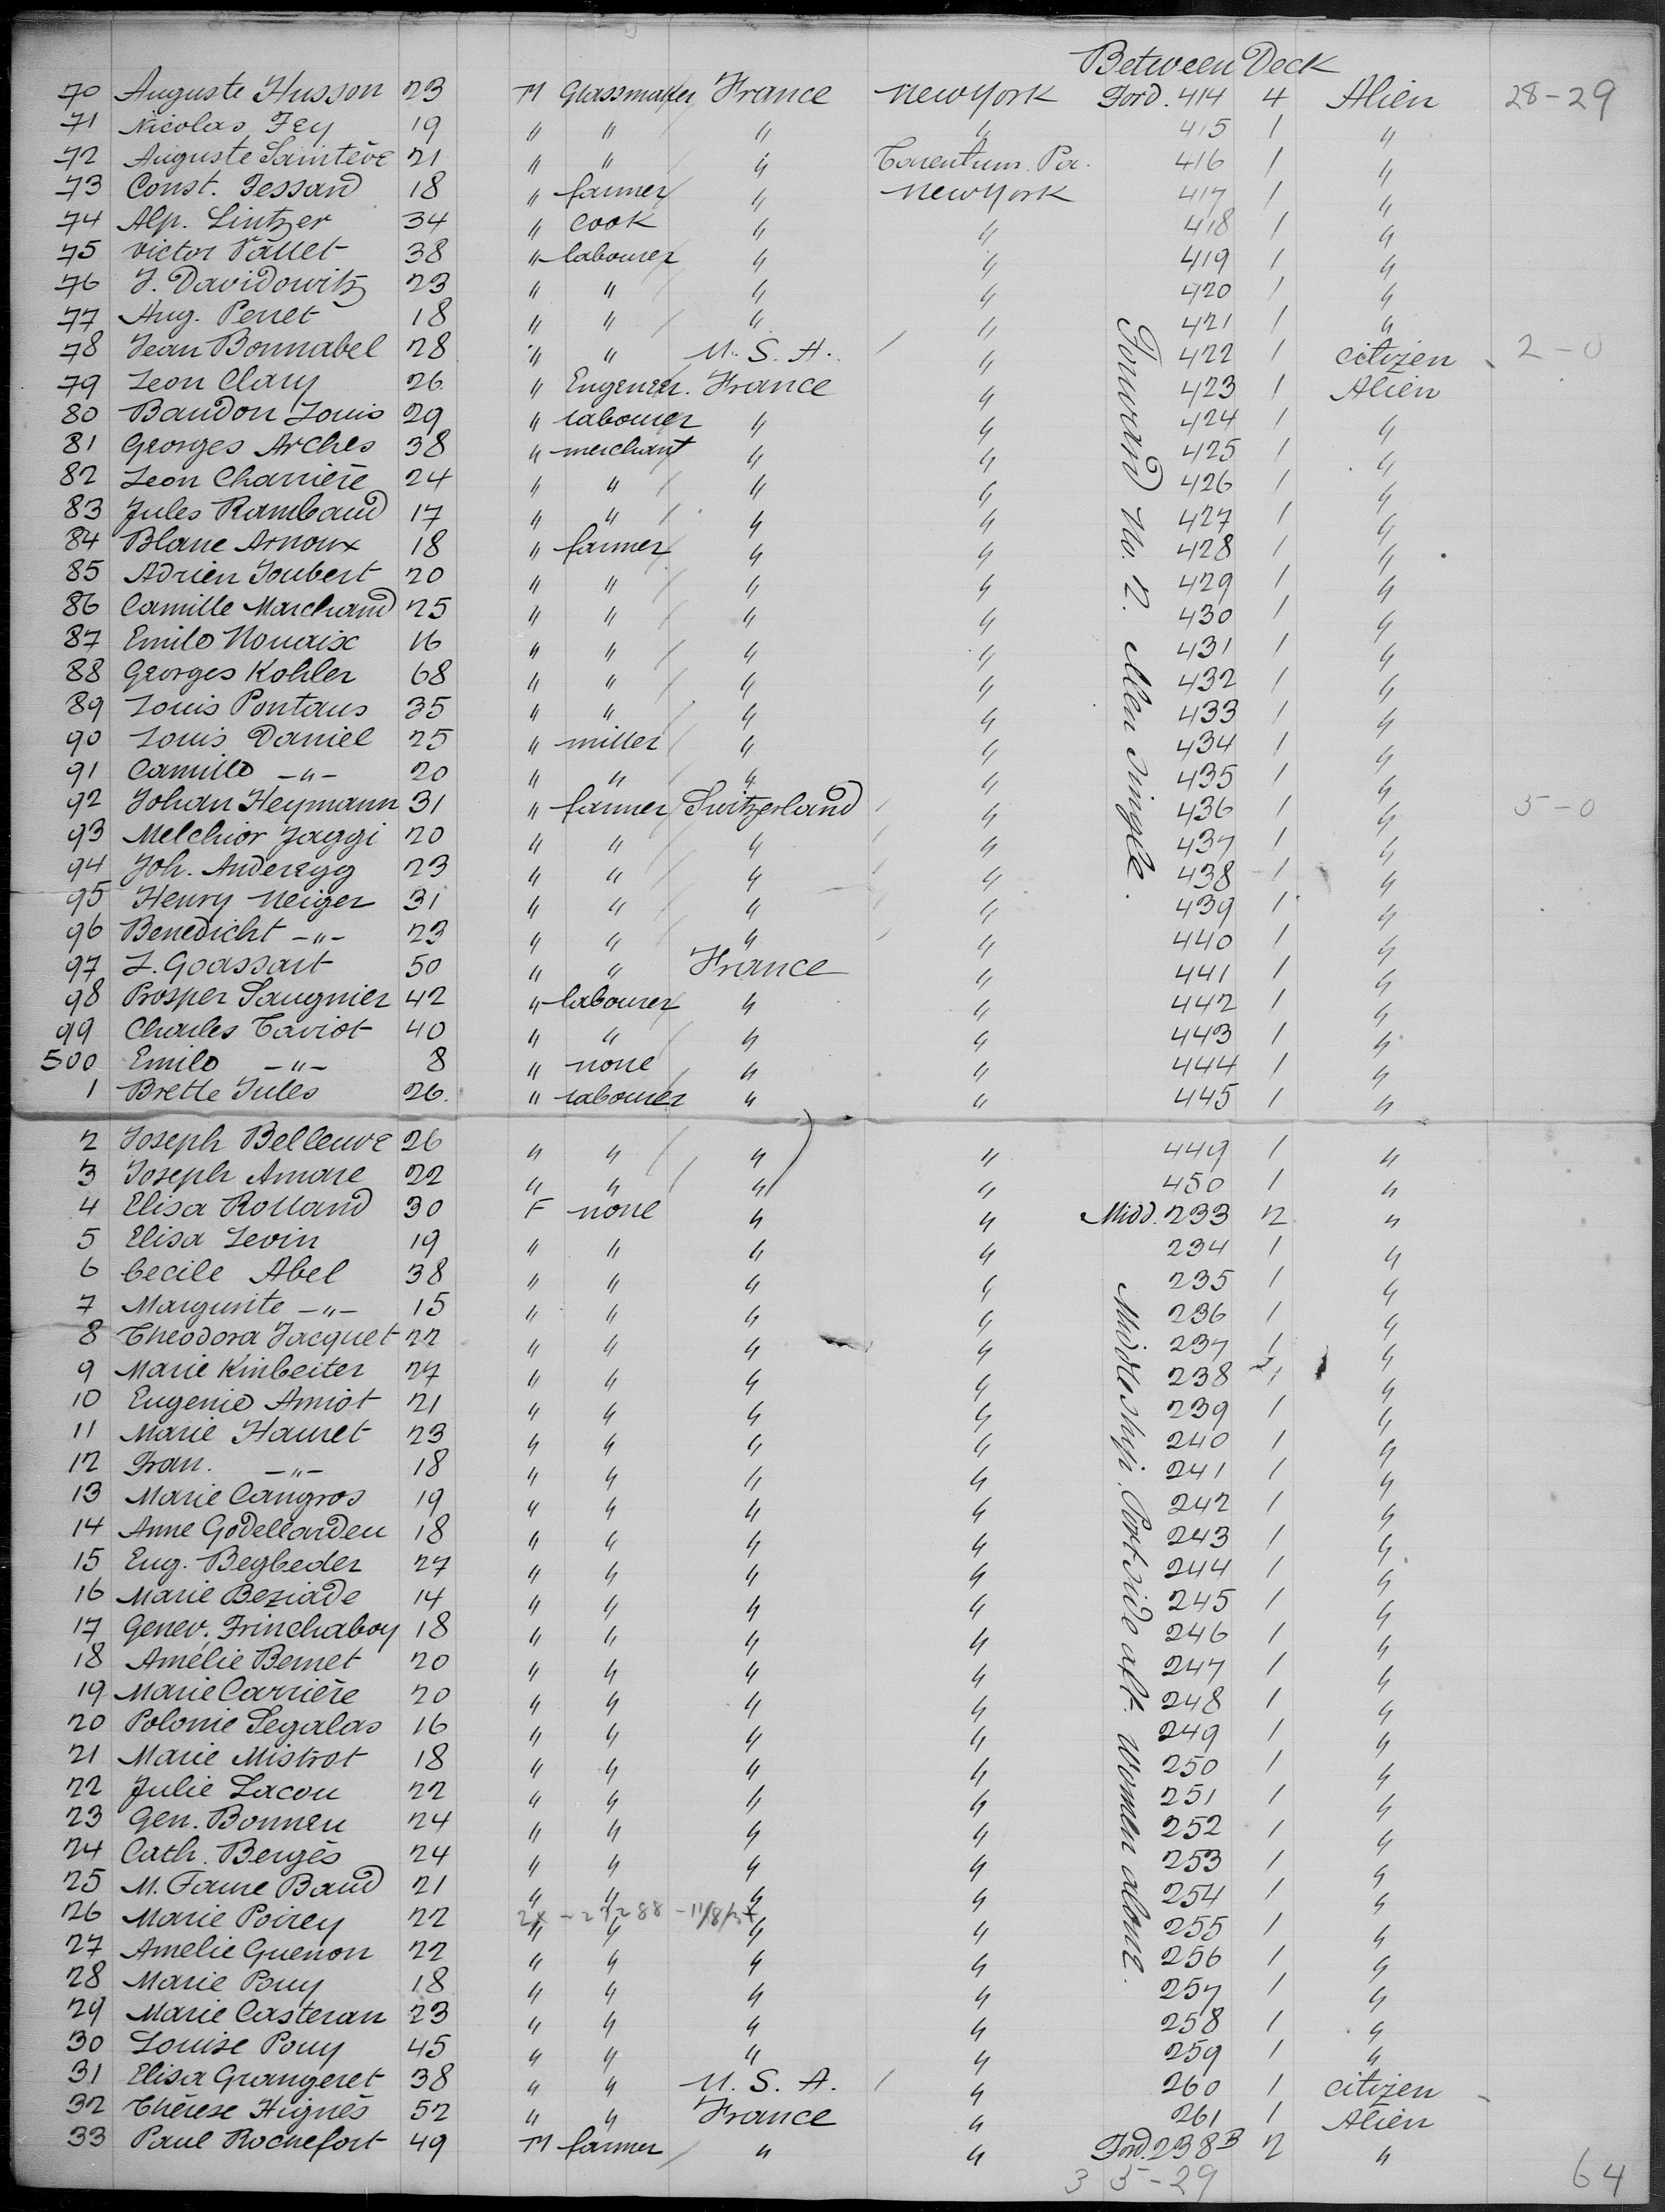 Between Deck
70 Auguste Husson 23 M Glassmaker France New York Ford. 414 4 Alien 28-29
71 Nicolas Fey 19 " " " " 415 1 "
72 Auguste Saintève 21 " " " Tarentum. Pa. 416 1 "
73 Const. Tessand 18 " farmer " New York 417 1 "
74 Alp. Lintzer 34 " cook " " 418 1 "
75 Victor Vallet 38 " labourer " " 419 1 "
76 J. Davidowitz 23 " " " " 420 1 "
77 Aug. Perret 18 " " " " 421 1 "
78 Jean Bonnabel 28 " " U. S. A. " 422 1 citizen 2-0
79 Leon Clary 26 " Engeneer. France " 423 1 Alien
80 Baudon Louis 29 " labourer " " 424 1 "
81 Georges Arches 38 " merchant " " 425 1 "
82 Leon Charrière 24 " " " " 426 1 "
83 Jules Rambaud 17 " " " " 427 1 "
84 Blanc Arnoux 18 " farmer " " 428 1 "
85 Adrien Joubert 20 " " " " 429 1 "
86 Camille Marchand 25 " " " " 430 1 "
87 Emile Nouaix 16 " " " " 431 1 "
88 Georges Kohler 68 " " " " 432 1 "
89 Louis Pontaus 35 " " " " 433 1 "
90 Louis Daniel 25 " miller " " 434 1 "
91 Camille -"- 20 " " " " 435 1 "
92 Johan Heymann 31 " farmer Switzerland " 436 1 " 5-0
93 Melchior Jaggi 20 " " " " 437 1 "
94 Joh. Anderegg 23 " " " " 438 1 "
95 Henry Neiger 31 " " " " 439 1 "
96 Benedicht -"- 23 " " " " 440 1 "
97 L. Goassart 50 " " France " 441 1 "
98 Prosper Saugnier 42 " labourer " " 442 1 "
99 Charles Taviot 40 " " " " 443 1 "
500 Emile -"- 8 " none " " 444 1 "
1 Brette Jules 26. " labourer " " 445 1 "
Forward No. 2. Men single.
2 Joseph Belleuve 26 " " " " 449 1 "
3 Joseph Amare 22 " " " " 450 1 "
4 Elisa Rolland 30 F none " " Midd. 233 2 "
5 Elisa Levin 19 " " " " 234 1 "
6 Cecile Abel 38 " " " " 235 1 "
7 Margurite -"- 15 " " " " 236 1 "
8 Theodora Jacquet 22 " " " " 237 1 "
9 Marie Kinbeiter 27 " " " " 238 1 "
10 Eugenie Amiot 21 " " " " 239 1 "
11 Marie Hauret 23 " " " " 240 1 "
12 Fran. -"- 18 " " " " 241 1 "
13 Marie Cangros 19 " " " " 242 1 "
14 Anne Godellardeu 18 " " " " 243 1 "
15 Eug. Begbeder 27 " " " " 244 1 "
16 Marie Beziade 14 " " " " 245 1 "
17 Genev. Frinchaboy 18 " " " " 246 1 "
18 Amélie Bernet 20 " " " " 247 1 "
19 Marie Carrière 20 " " " " 248 1 "
20 Polonie Segalas 16 " " " " 249 1 "
21 Marie Mistrot 18 " " " " 250 1 "
22 Julie Lacou 22 " " " " 251 1 "
23 Gen. Bonneu 24 " " " " 252 1 "
24 Cath. Bergès 24 " " " " 253 1 "
25 M. Fame Baud 21 " " " " 254 1 "
26 Marie Poirey 22 " " " " 255 1 "
27 Amelie Guenon 22 " " " " 256 1 "
28 Marie Pouy 18 " " " " 257 1 "
29 Marie Casteran 23 " " " " 258 1 "
30 Louise Pouy 45 " " " " 259 1 "
31 Elisa Grangeret 38 " " U. S. A. " 260 1 citizen
32 Thérèse Hignès 52 " " France " 261 1 Alien
33 Paul Rochefort 49 M farmer " " Ford. 238B 2 "
Middleship. Portside aft. Women alone.
3 5-29
64